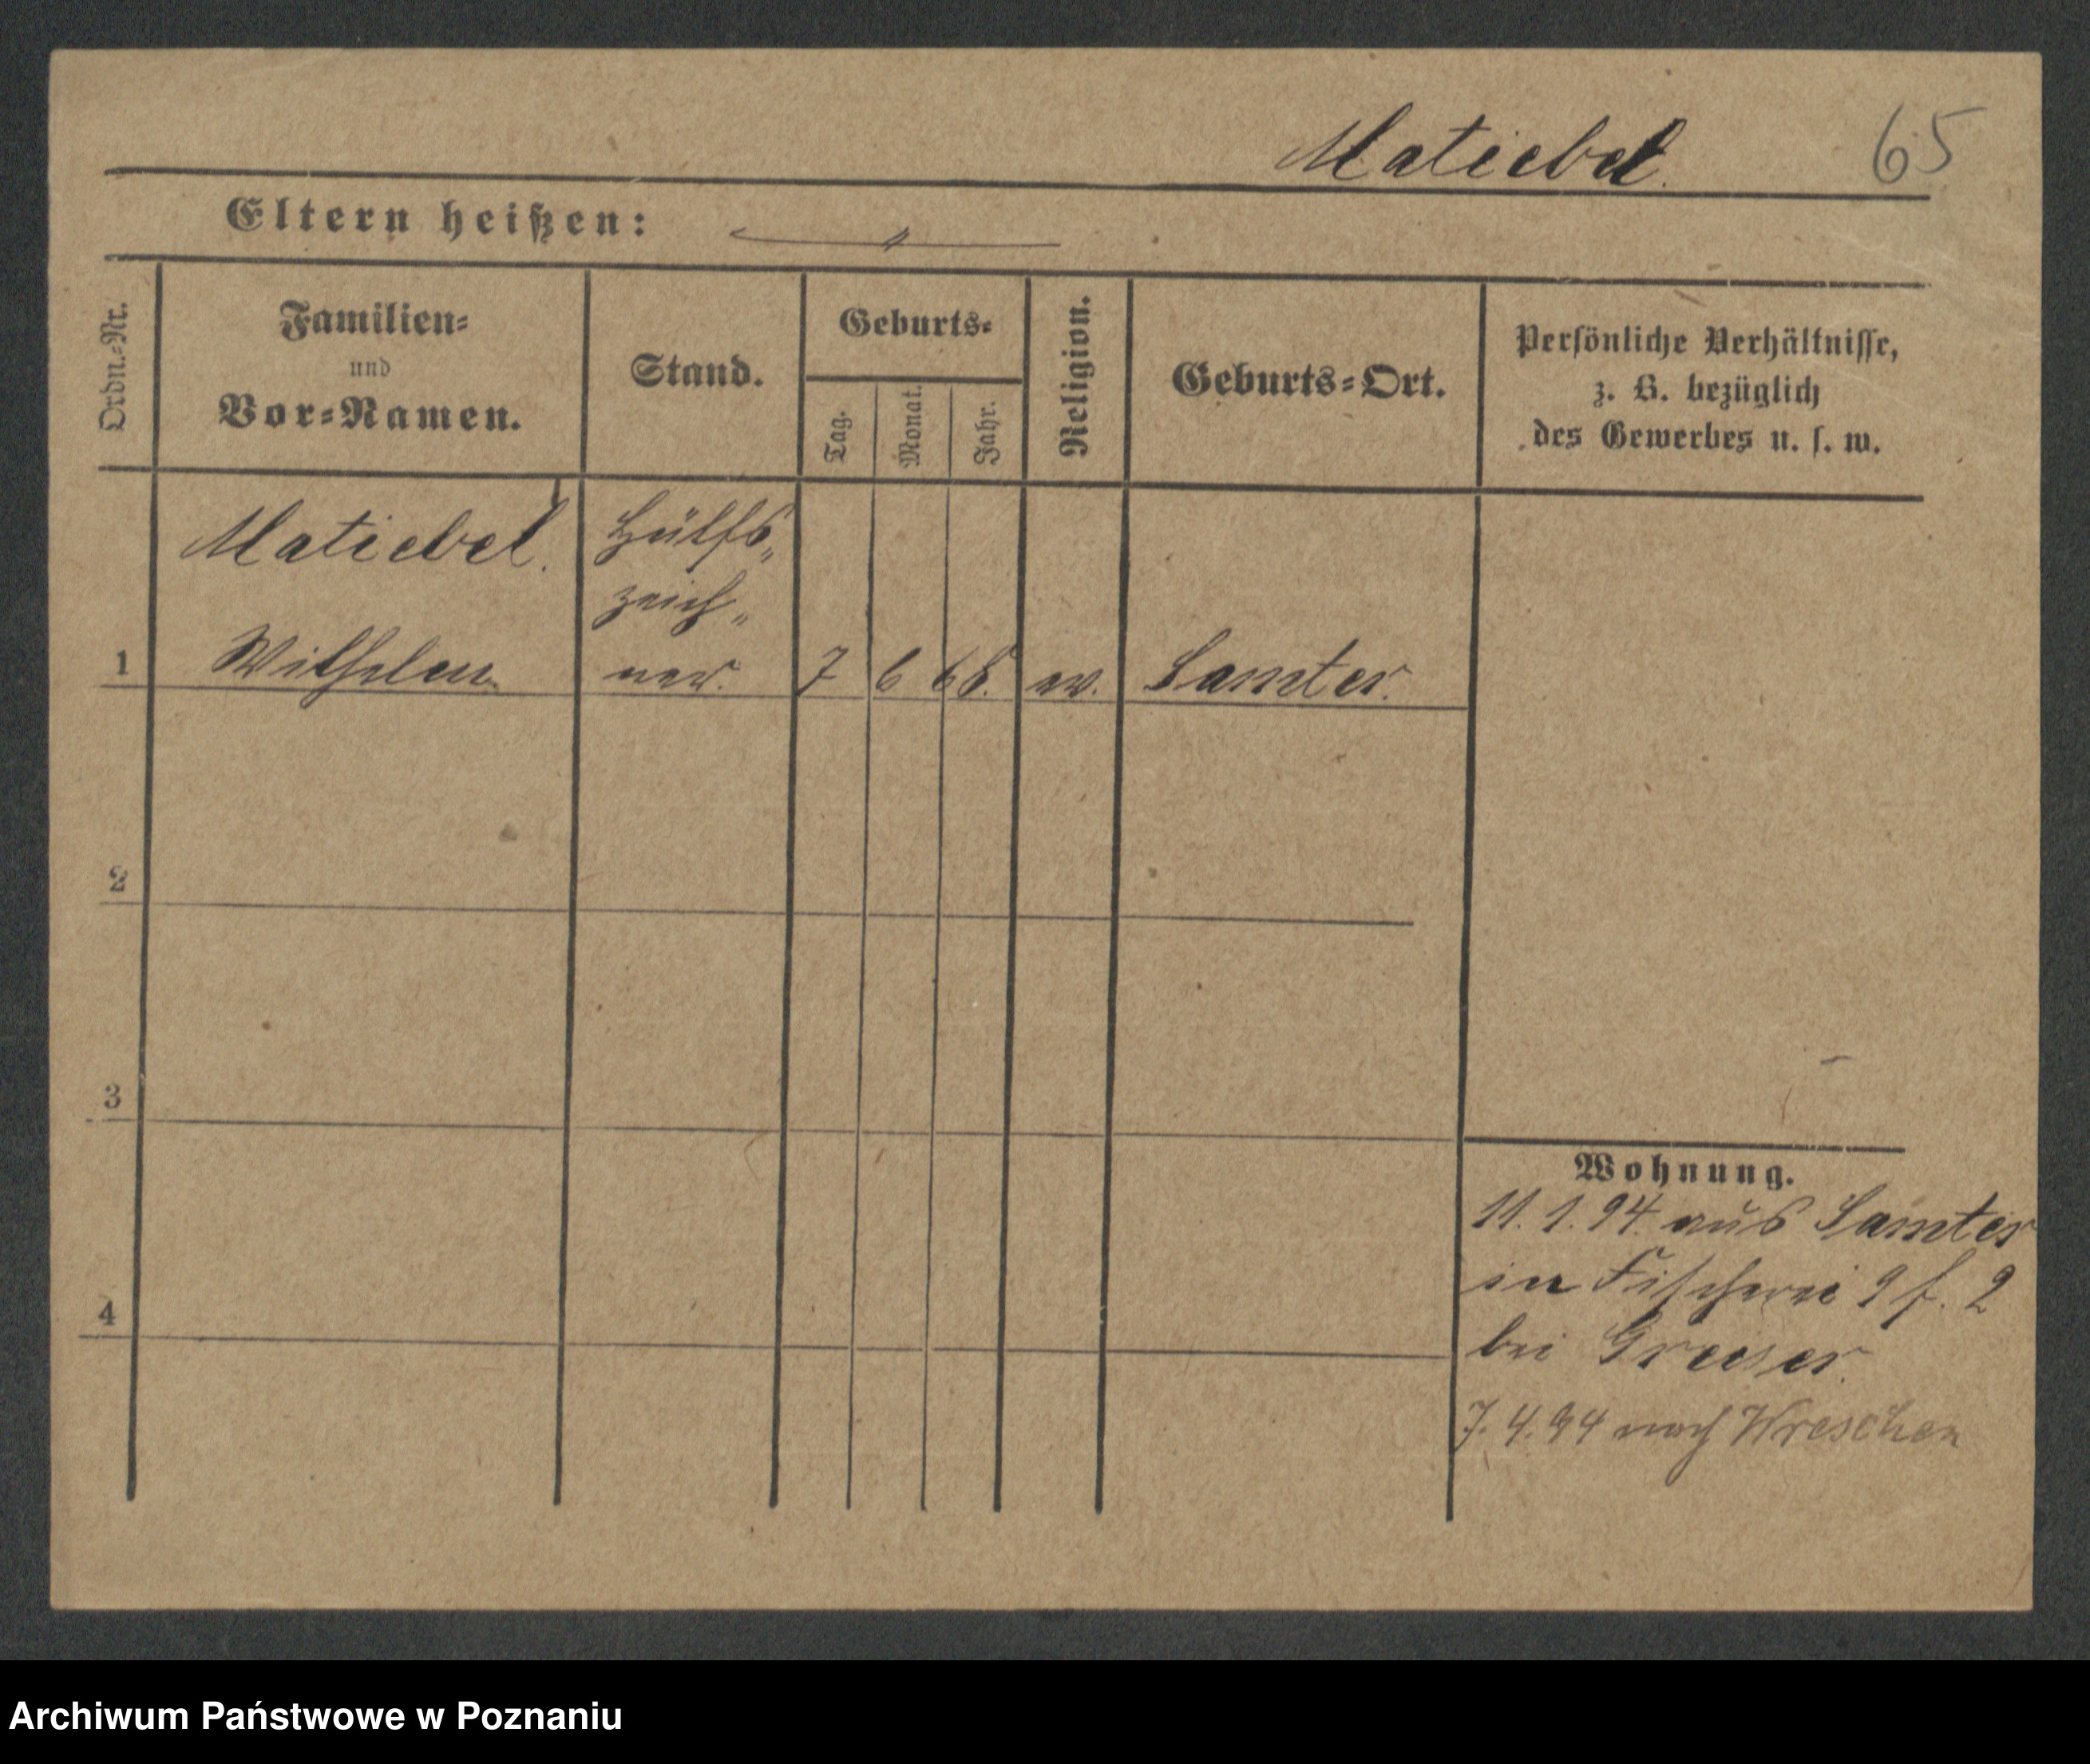 Matiebel.
65
Eltern heißen:
Ordn.=Nr.
Familien=
und
Vor=Namen.
Stand.
Geburts=
Tag.
Monat.
Jahr.
Religion.
Geburts=Ort.
Persönliche Verhältnisse,
z. B. bezüglich
des Gewerbes u. s. w.
Matiebel.
Hülfs„
zeich„
1 Wilhelm ner. 7 6 68. ev. Samter.
2
3
4
Wohnung.
11.1.94. aus Samter
in Fischerei 9 f. 2
bei Greiser.
7.4.94 nach Wreschen
Archiwum Państwowe w Poznaniu